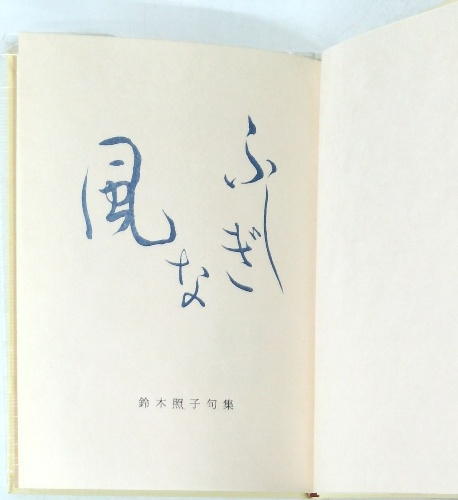 ふしぎ
な
風
鈴木照子句集